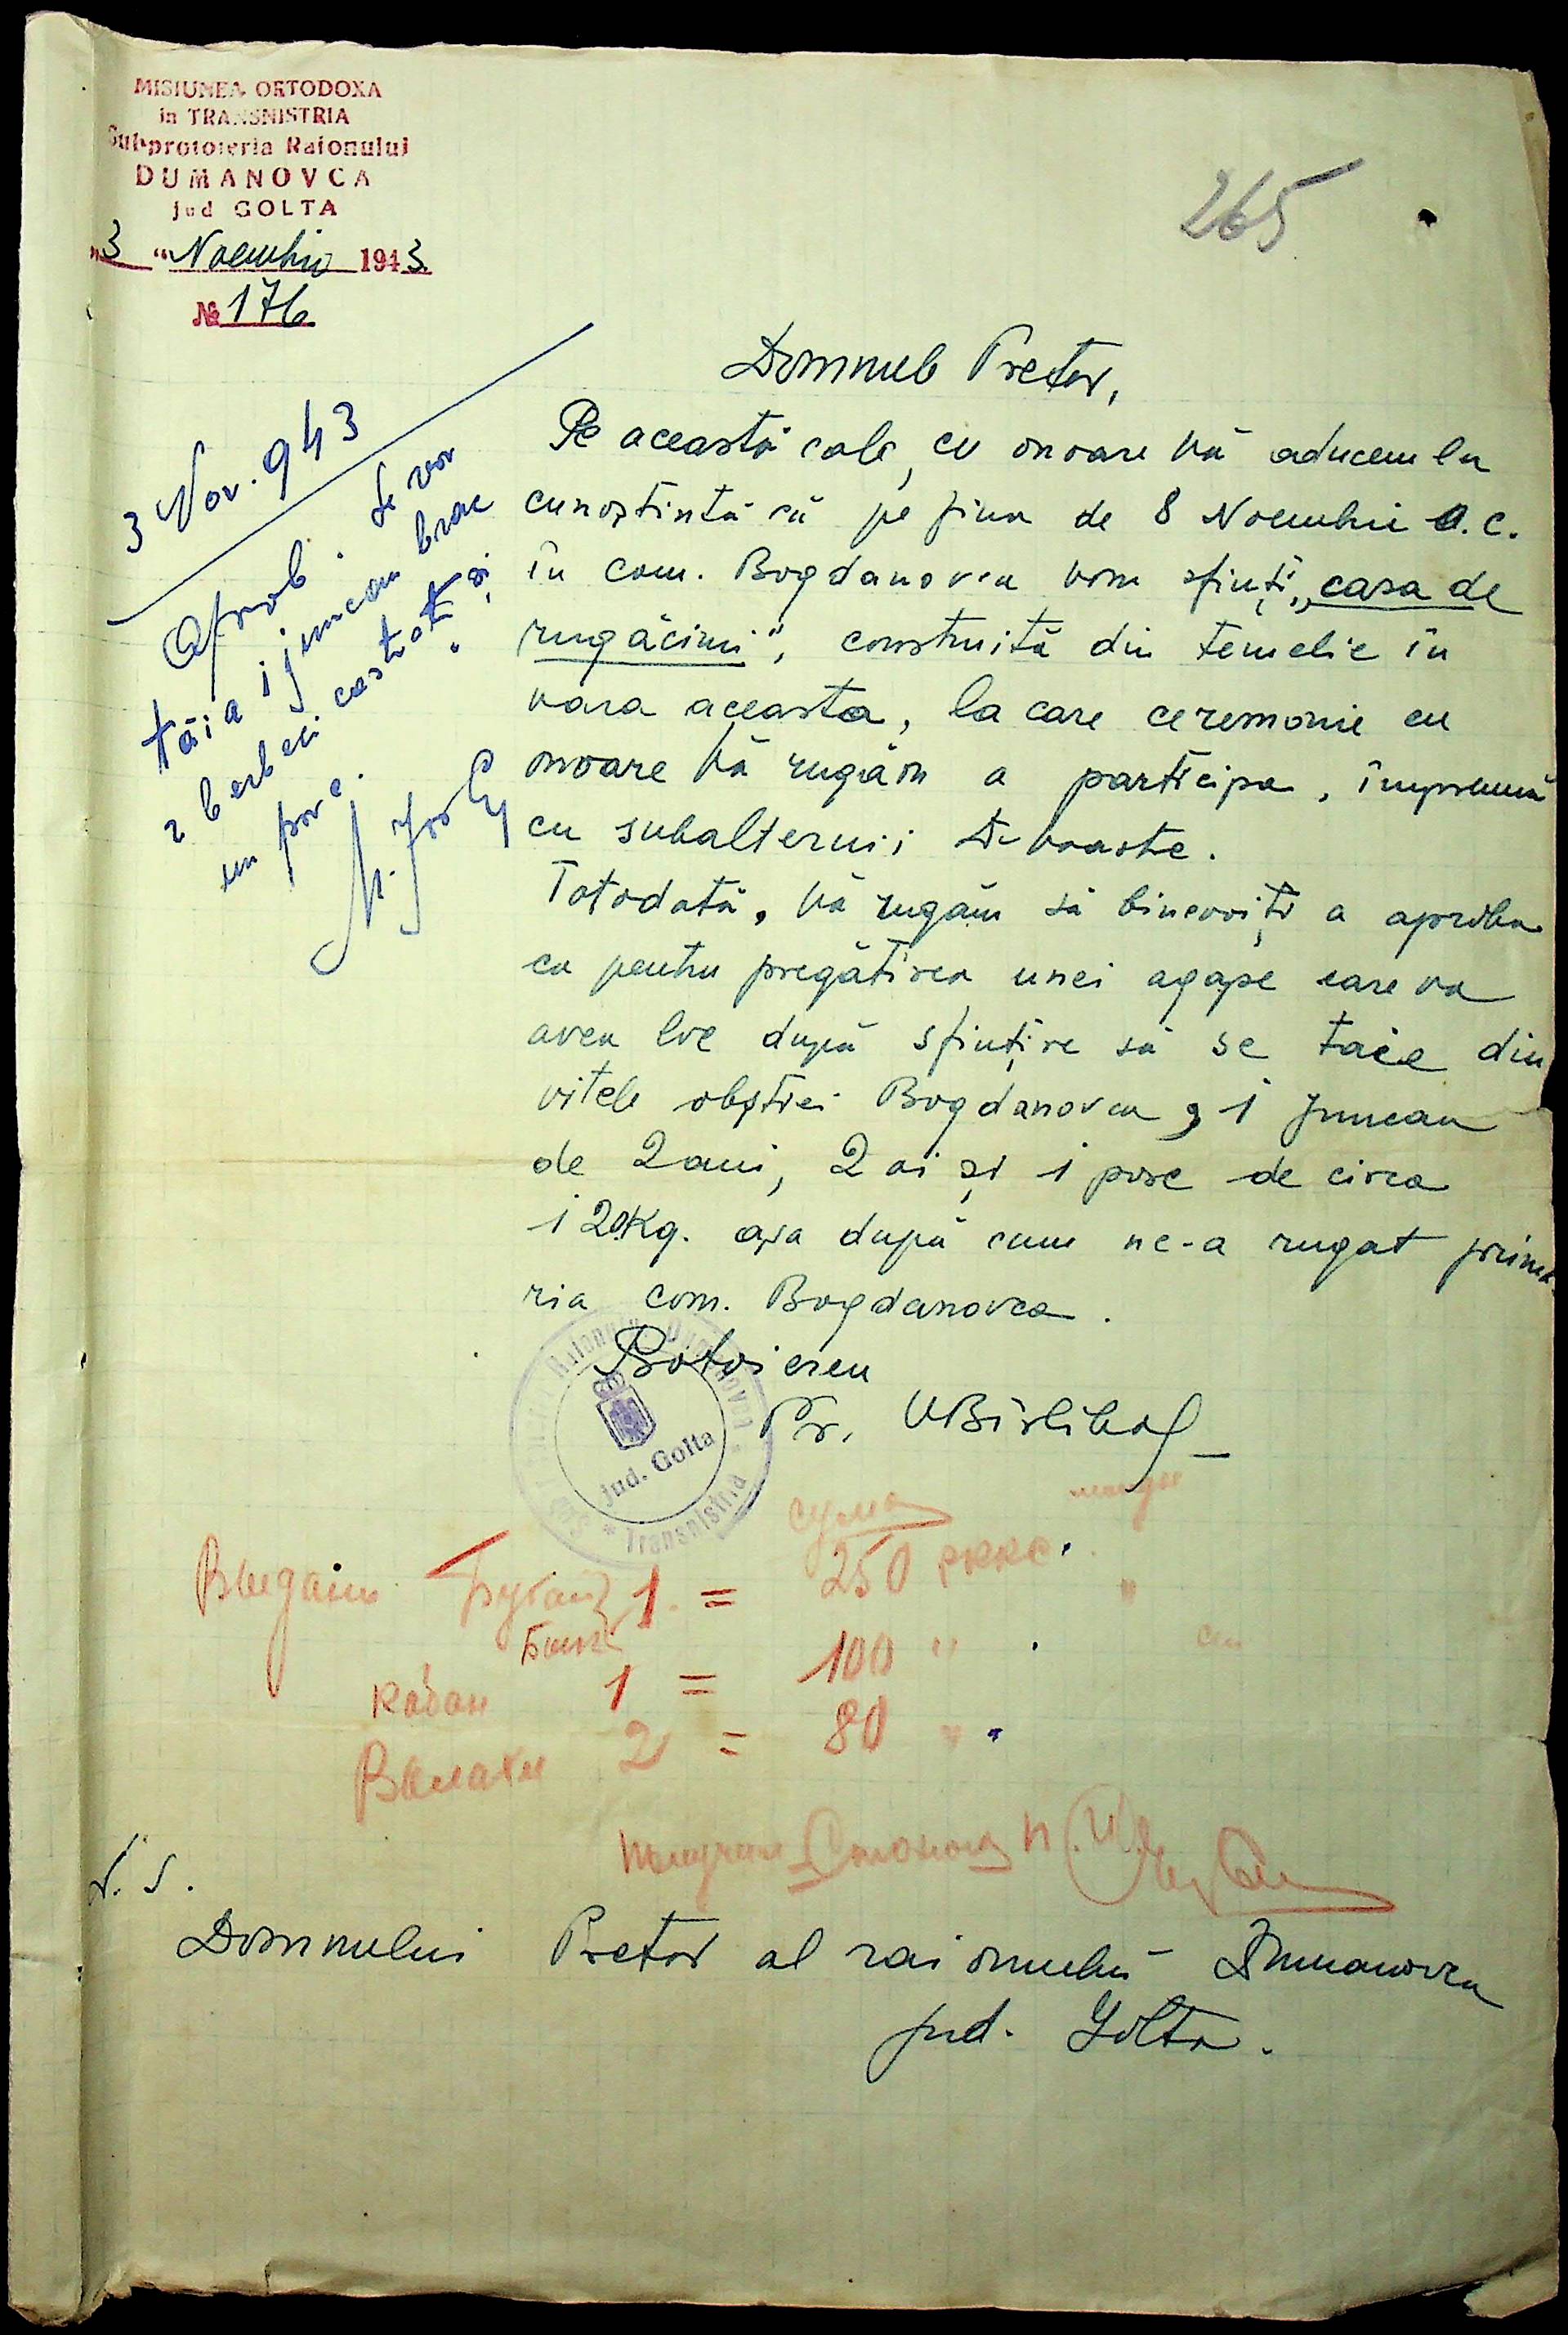 MISIUNEA ORTODOXA
in TRANSNISTRIA
Subprotoieria Raionului
DUMANOVCA
jud GOLTA
"3" Noembrie 1943.
№ 176
265
3 Nov. 943
Aprob. Se vor
tăia 1 juncan brac
2 berbeci castrați și
un porc.
Domnule Pretor,
Pe această cale, cu onoare Vă aducem la
cunoștintă că pe ziua de 8 Noembrie a.c.
în com. Bogdanovca vom sfinți „casa de
rugăciuni", construită din temelie în
vara aceasta, la care ceremonie cu
onoare Vă rugăm a participa, împreună
cu subalternii D-voastre.
Totodată, Vă rugăm să binevoiți a aproba
ca pentru pregătirea unei agape care va
avea loc după sfințire să se taie din
vitele obștiei Bogdanovca, 1 juncan
de 2 ani, 2 oi și 1 porc de circa
120 Kg. așa după cum ne-a rugat primă
ria com. Bogdanovca.
Protoiereu
Pr.
Raionului Dumanovca
jud. Golta
* Transnistria *
сума
1 = 250
1 = 100 "
Кабан
2 = 80 "
Domnului Pretor al raionului Dumanovca
jud. Golta.